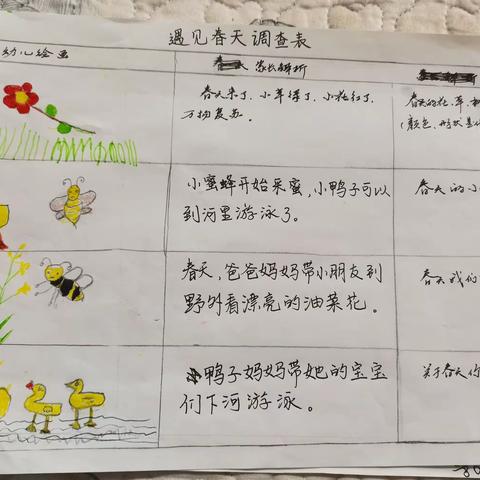 遇见春天调查表
幼儿绘画
家长解析
春天来了，小草绿了，小花红了，
万物复苏。
春天的花、草、
（颜色、形状
小蜜蜂开始采蜜，小鸭子可以
到河里游泳了。
春天的小
春天，爸爸妈妈带小朋友到
野外看漂亮的油菜花。
春天我们
鸭子妈妈带她的宝宝
们下河游泳。
关于春天你